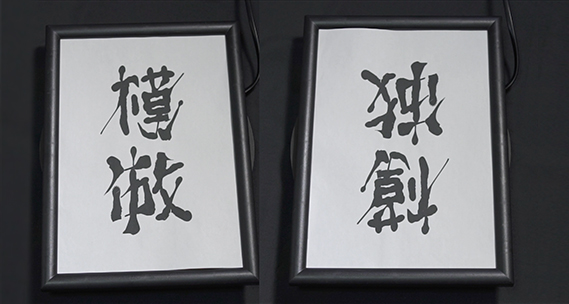 模倣
模倣